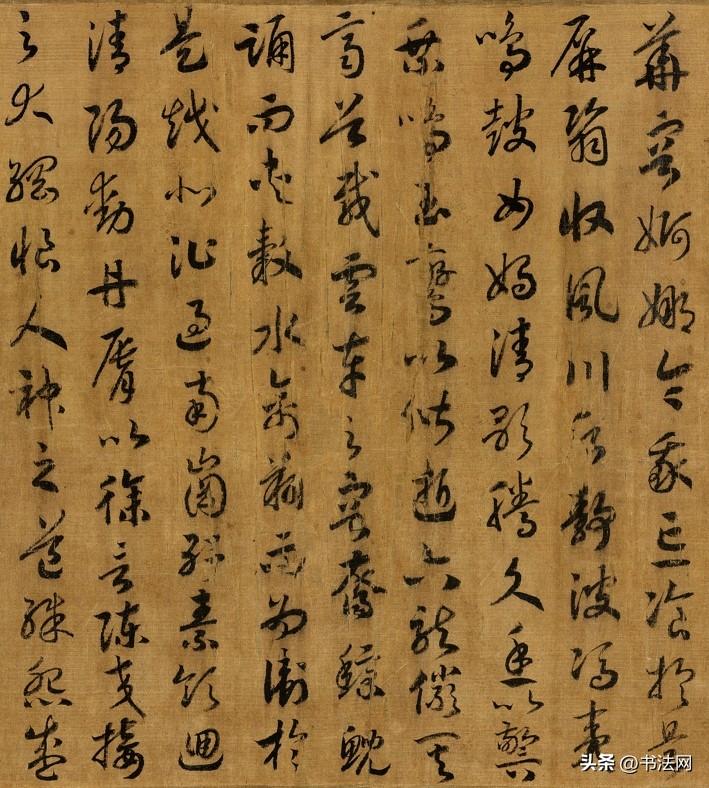 華容婀娜令我忘飡於是
屏翳收風川后靜波馮夷
鳴鼓女媧清歌騰文魚以警
乘鳴玉鸞以偕逝六龍儼其
齊首載雲車之容裔鯨鯢
踊而夾轂水禽翔而為衛於
是越北沚過南崗紆素領迴
清陽動丹脣以徐言陳交接
之大綱恨人神之道殊怨盛
头条 @书法网